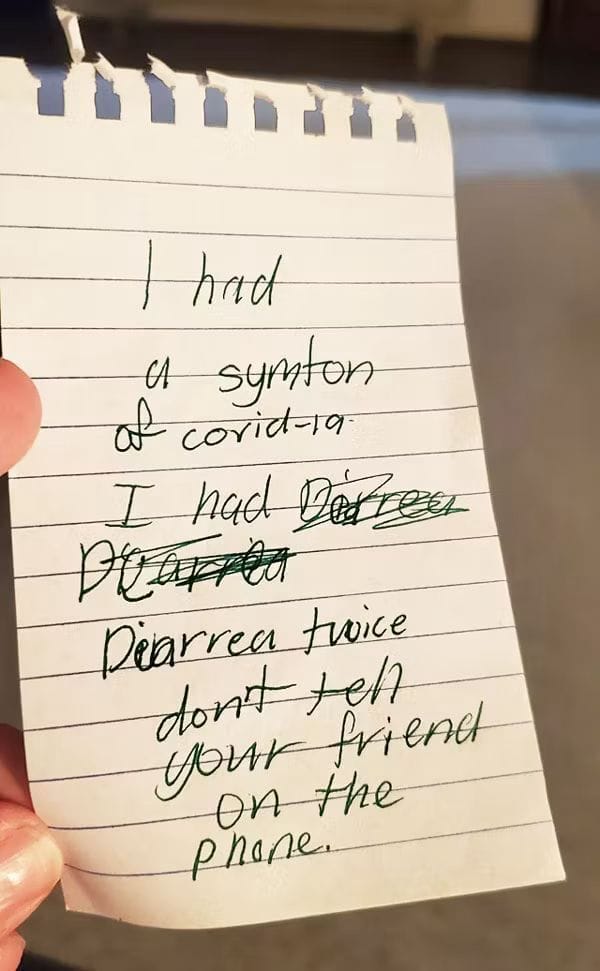 I had
a symton
of covid-19.
I had Diarrea
Diarrea
Diarrea twice
don't tell
your friend
on the
phone.